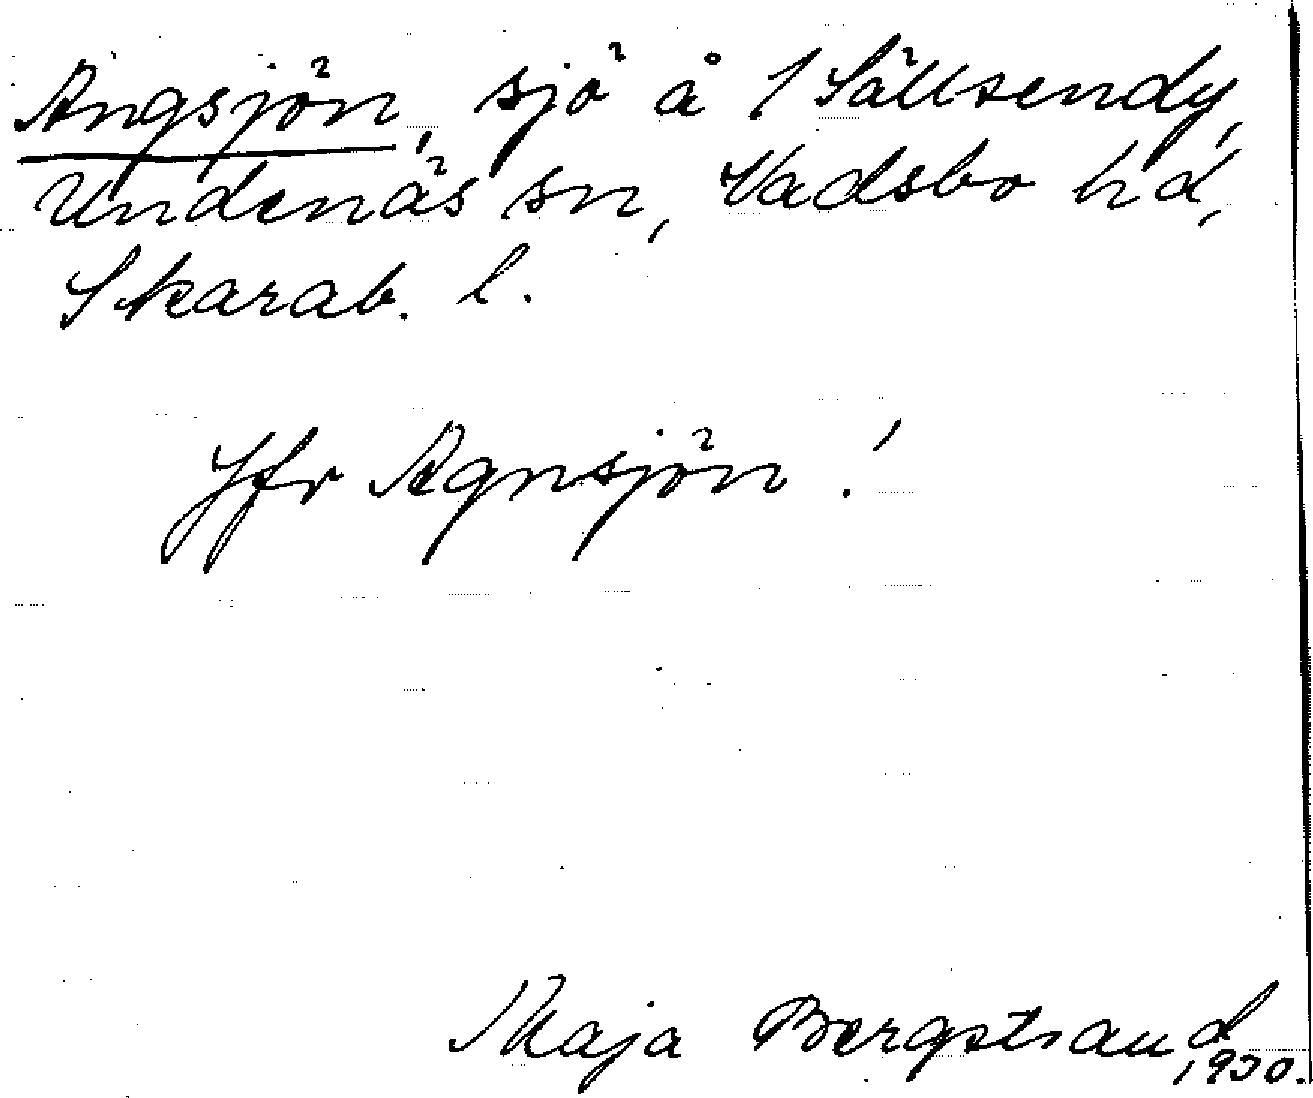 Angsjön, sjö å 1 Sällsendy,
Undenäs sn, Vadsbo hd,
Skarab. l.
Jfr Agnsjön!
Maja Bergstrand
1930.